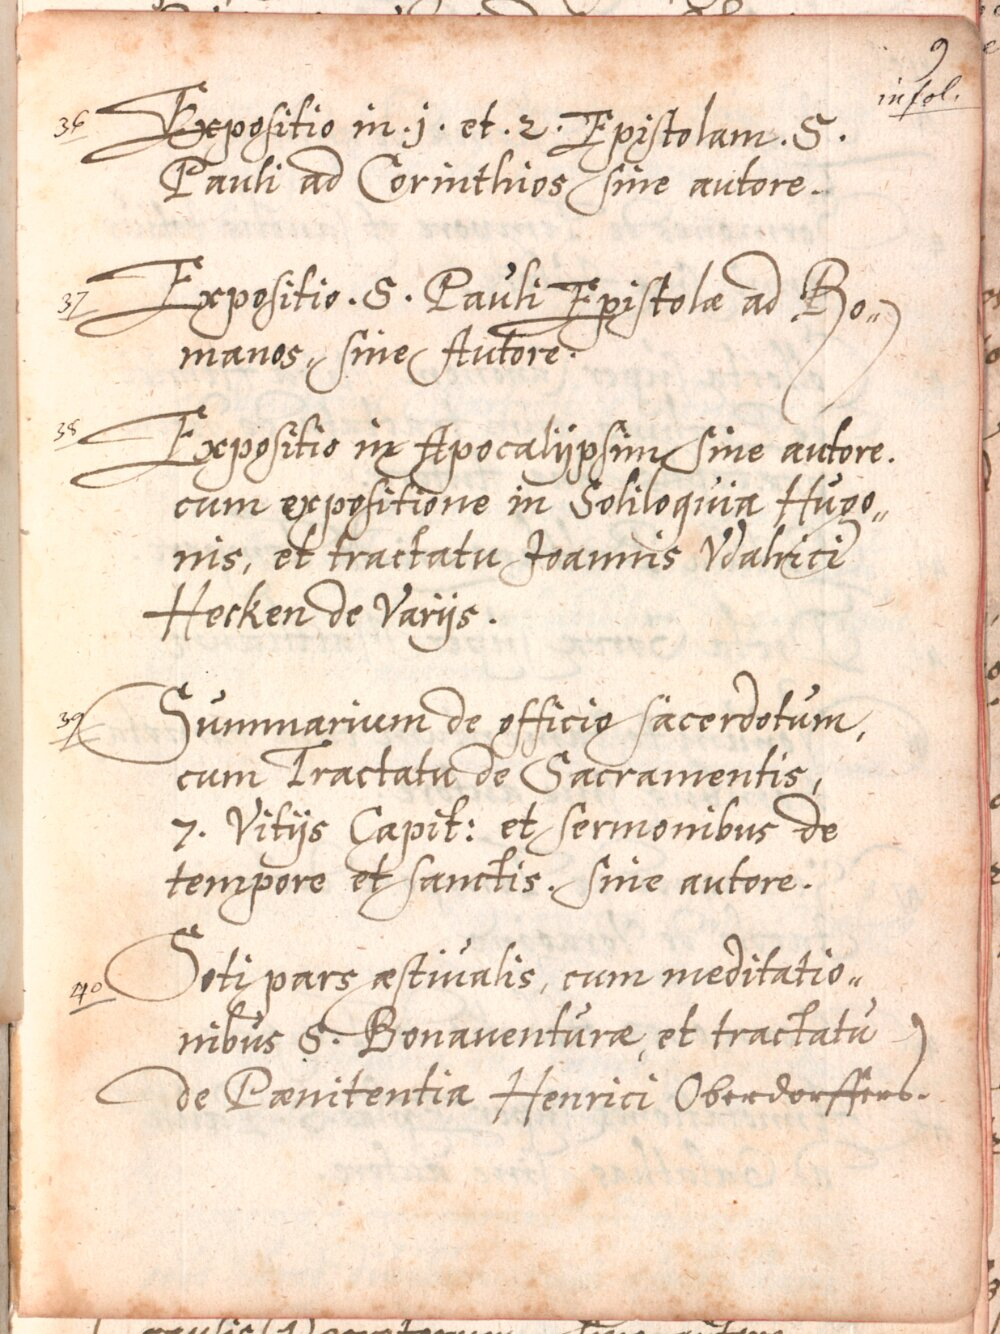 9
in fol.
36 Expositio in .j. et .2. Epistolam .S.
Pauli ad Corinthios sine autore.
37 Expositio .S. Pauli Epistolæ ad Ro„
manos, sine Autore.
38 Expositio in Apocalijpsim sine autore.
cum expositione in Soliloquia Hugo„
nis, et tractatu Joannis Vdalrici
Hecken de Varijs.
39 Summarium de officio sacerdotum,
cum Tractatu de Sacramentis,
7. Vitijs Capit: et sermonibus de
tempore et sanctis. sine autore.
40 Soti pars æstiualis, cum meditatio„
nibus S. Bonauenturæ, et tractatu
de Pænitentia Henrici Oberdorffers.